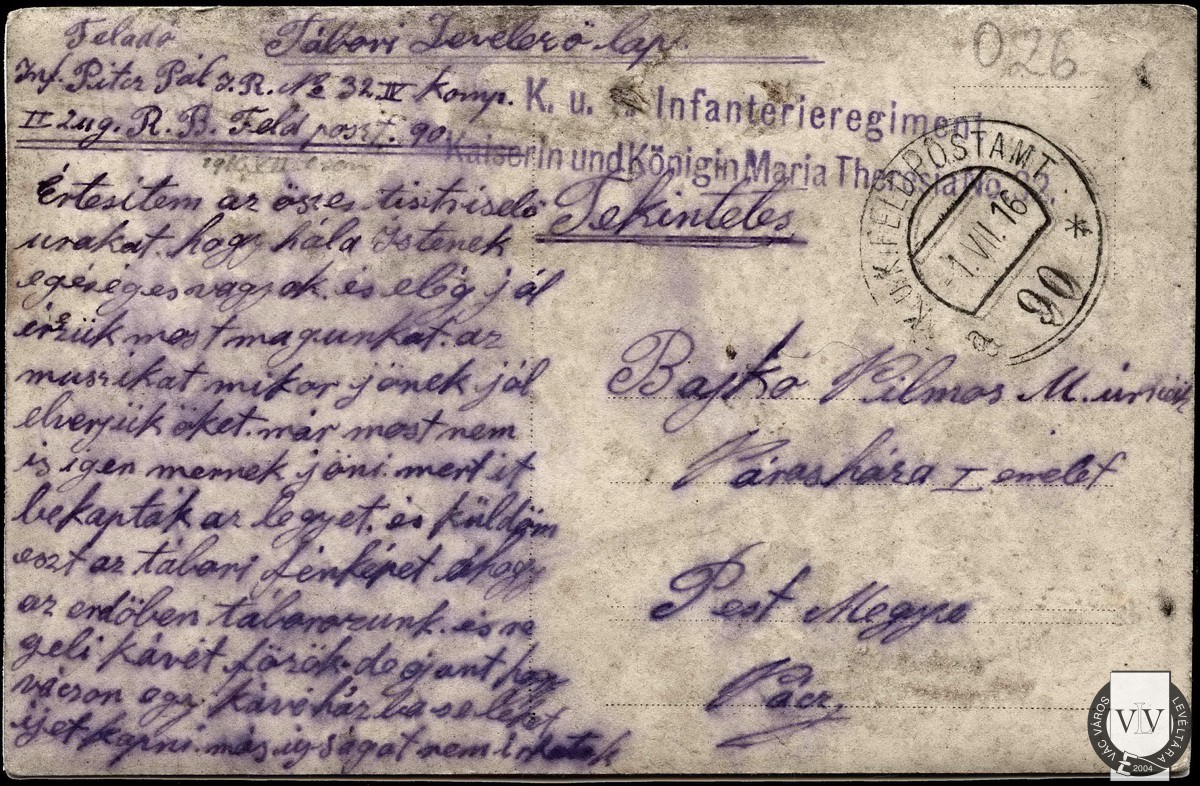 Feladó Tábori Levelező lap.
026
Inf. Piter Pál J. R. No 32 IV Komp.
II Zug. R. B. Feld poszt. 90
K. u. Infanterieregiment
Kaiserin und Königin Maria Theresia No. 32.
K.U.K. FELDPOSTAMT *
1. VII. 16
90
Értesitem az öszes tisztviselö
urakat. hogy hála Istenek
egéséges vagyok. és elég jól
érzük most magunkat. az
muszikat mikor jönek jól
elverjük öket. már most nem
is igen mernek jöni. mert it
bekapták az legyet. és küldöm
eszt az tábori fénképet ahogy
az erdöben táborozunk. és re
geli kávét fözök. de ojant hogy
váczon egy kávéházba se lehet
ijet kapni. más ujságot nem irhatok
Tekintetes
Bajkó Vilmos M. úrnak
Városháza I emelet
Pest Megye
Vácz.
VÁC VÁROS LEVÉLTÁRA
VLV
2004